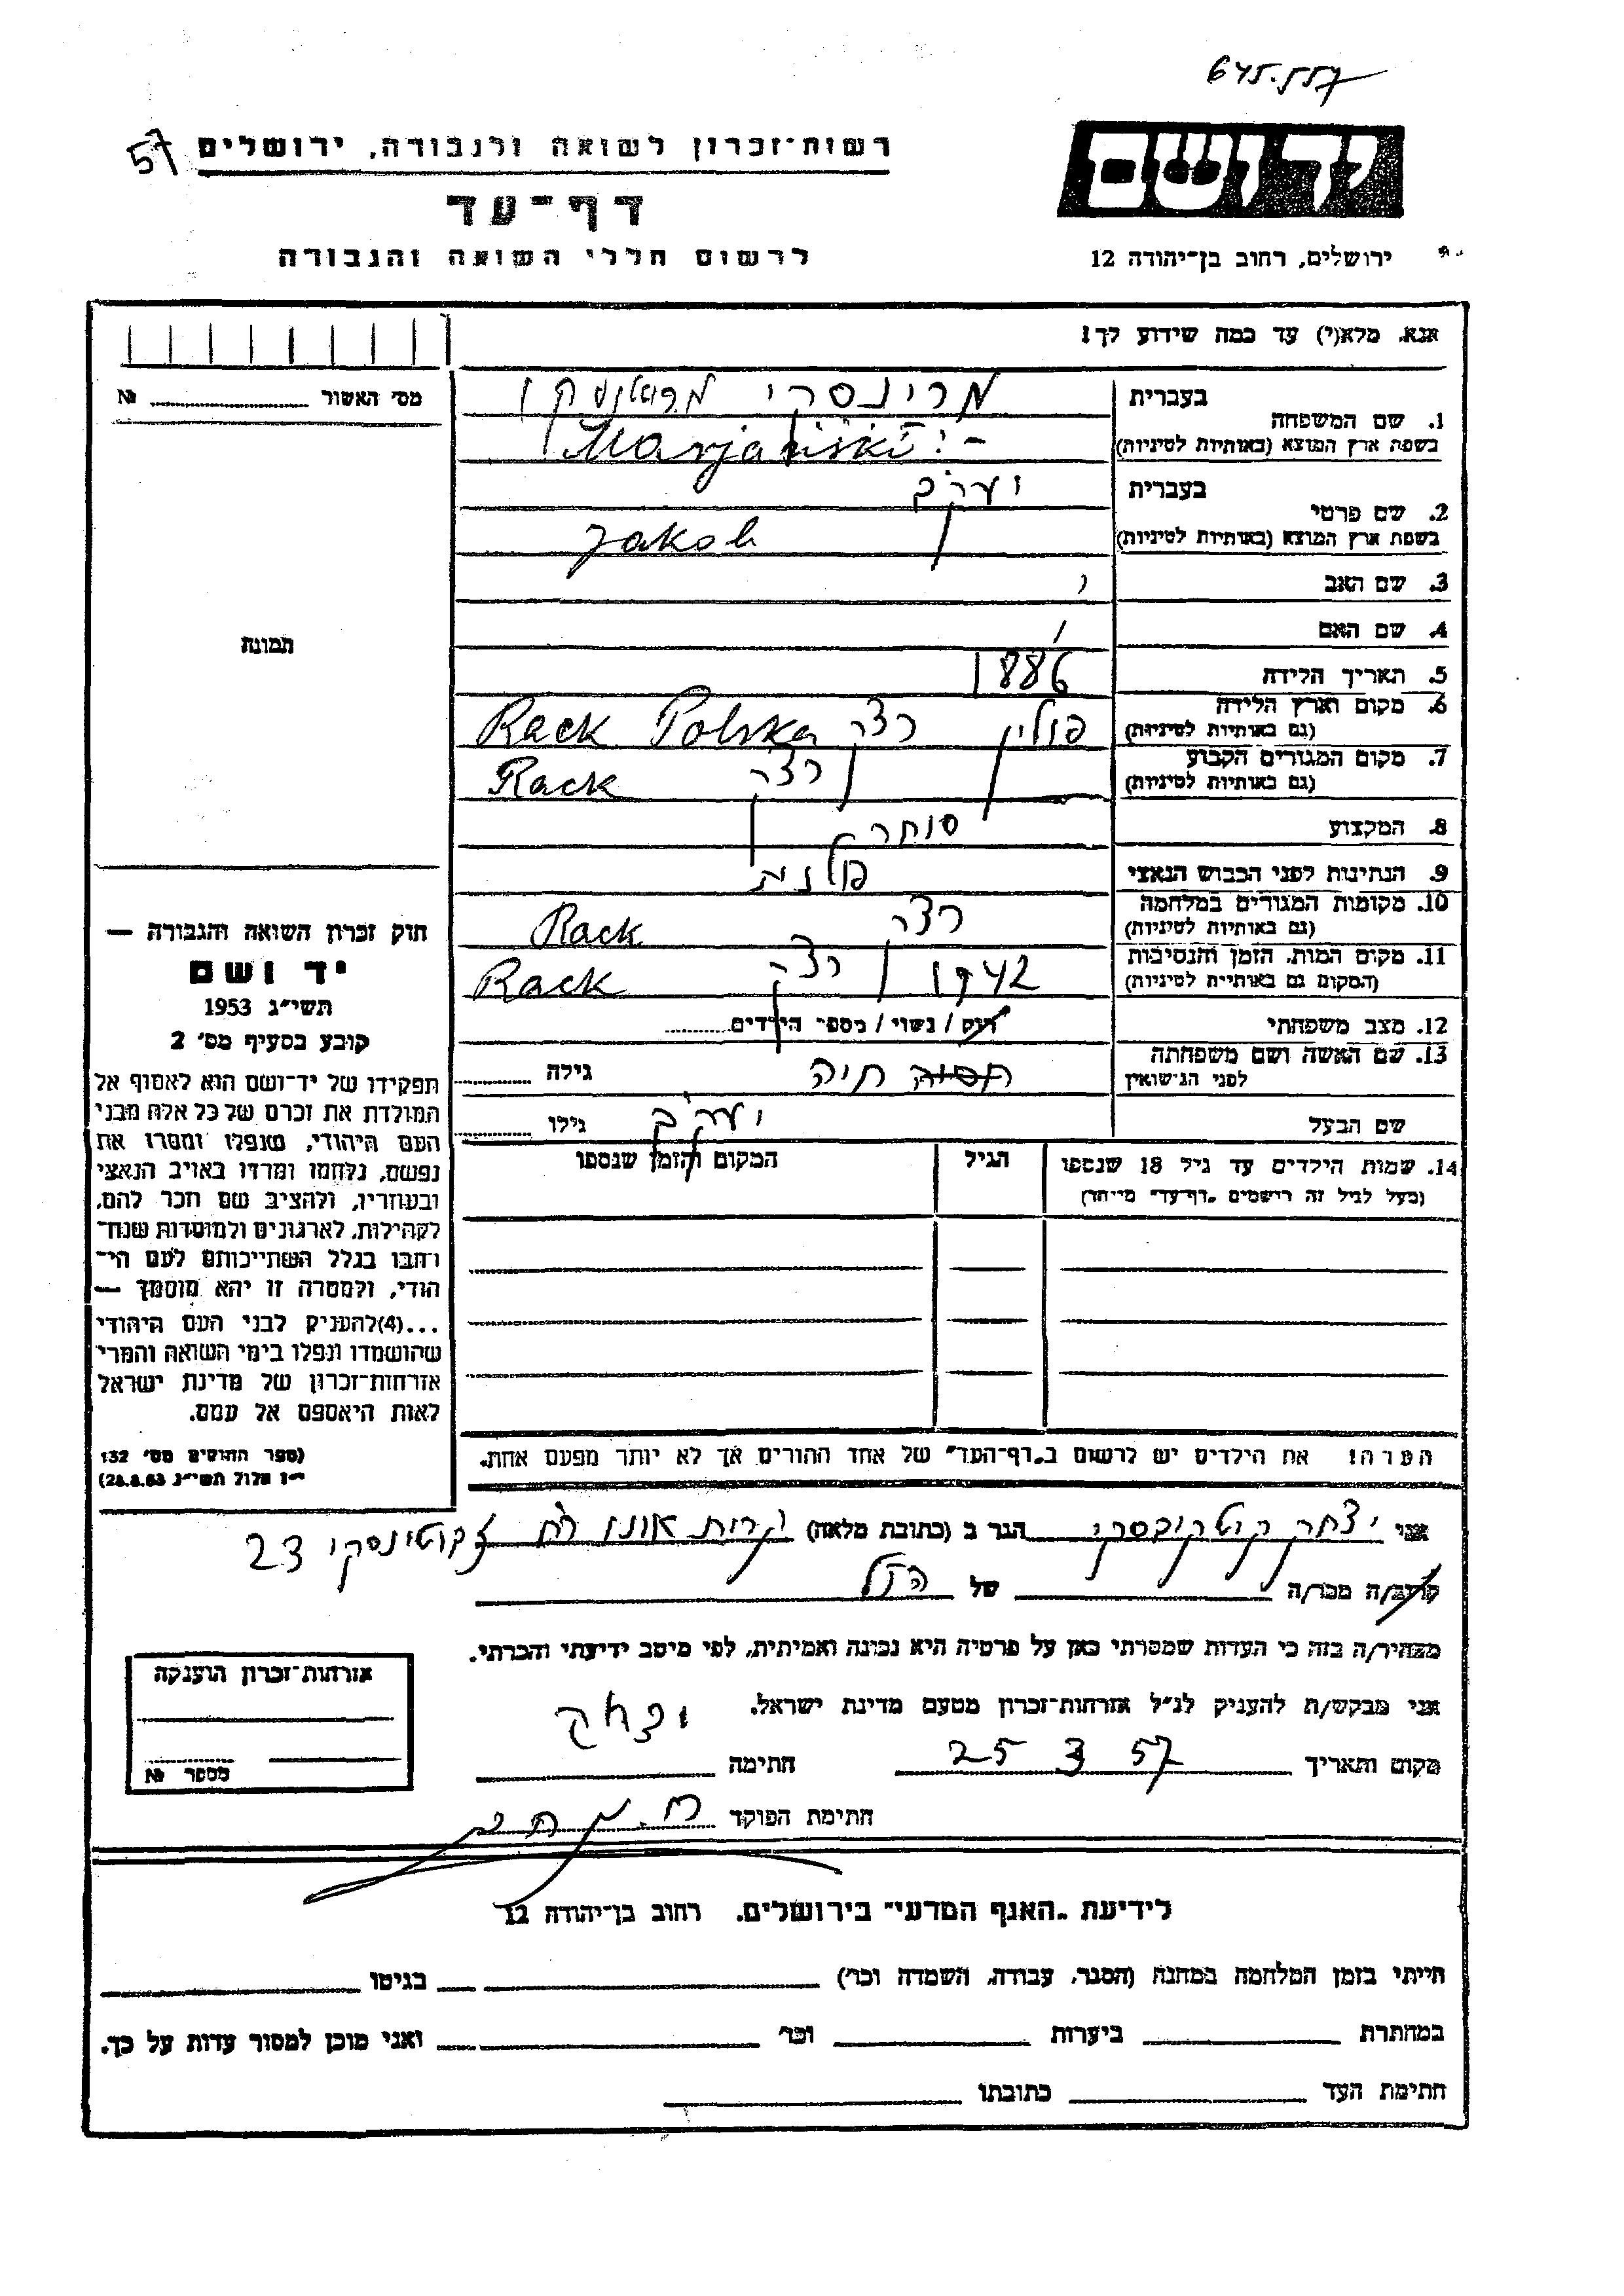 645.557
57
רשות־זכרון לשואה ולגבורה, ירושלים
יד ושם
דף־עד
לרשום חללי השואה והגבורה
ירושלים, רחוב בן־יהודה 12
אנא, מלא(י) עד כמה שידוע לך!
מס׳ האשור № ........
בעברית
מרינסקי
1. שם המשפחה
בשפת ארץ המוצא (באותיות לטיניות)
Marjański
בעברית
יעקב
2. שם פרטי
בשפת ארץ המוצא (באותיות לטיניות)
Jakob
3. שם האב
4. שם האם
תמונה
5. תאריך הלידה 1886
6. מקום וארץ הלידה
(גם באותיות לטיניות)
פולין רצק Rack Polska
7. מקום המגורים הקבוע
(גם באותיות לטיניות)
רצק Rack
8. המקצוע סוחר
9. הנתינות לפני הכבוש הנאצי פולנית
10. מקומות המגורים במלחמה
(גם באותיות לטיניות)
רצק Rack
11. מקום המות, הזמן והנסיבות
(המקום גם באותיות לטיניות)
1942 רצק Rack
12. מצב משפחתי רווק / נשוי / מספר הילדים........
13. שם האשה ושם משפחתה
לפני הנישואין
חיה גילה ........
שם הבעל יעקב גילו ........
14. שמות הילדים עד גיל 18 שנספו
(מעל לגיל זה רושמים „דף־עד״ מיוחד)
הגיל
המקום והזמן שנספו
חוק זכרון השואה והגבורה —
יד ושם
תשי״ג 1953
קובע בסעיף מס׳ 2
תפקידו של יד־ושם הוא לאסוף אל
המולדת את זכרם של כל אלה מבני
העם היהודי, שנפלו ומסרו את
נפשם, נלחמו ומרדו באויב הנאצי
ובעוזריו, ולהציב שם וזכר להם,
לקהילות, לארגונים ולמוסדות שנח־
רבו בגלל השתייכותם לעם הי־
הודי, ולמטרה זו יהא מוסמך —
...(4)להעניק לבני העם היהודי
שהושמדו ונפלו בימי השואה והמרי
אזרחות־זכרון של מדינת ישראל
לאות היאספם אל עמם.
(ספר החוקים מס׳ 132
י״ז אלול תשי״ג 28.8.53)
הערה! את הילדים יש לרשום ב„דף־העד״ של אחד ההורים אך לא יותר מפעם אחת.
אני יצחק הגר ב (כתובת מלאה) קרית אונו ז׳בוטינסקי 23
קרוב/ה מכר/ה של הנ״ל
מצהיר/ה בזה כי העדות שמסרתי כאן על פרטיה היא נכונה ואמיתית, לפי מיטב ידיעתי והכרתי.
אני מבקש/ת להעניק לנ״ל אזרחות־זכרון מטעם מדינת ישראל.
מקום ותאריך 25 3 57 חתימה יצחק
חתימת הפוקד
אזרחות־זכרון הוענקה
מספר №
לידיעת „האגף המדעי״ בירושלים, רחוב בן־יהודה 12
הייתי בזמן המלחמה במחנה (הסגר, עבודה, השמדה וכו׳) בגיטו
במחתרת ביערות וכו׳ ואני מוכן למסור עדות על כך.
חתימת העד כתובתו